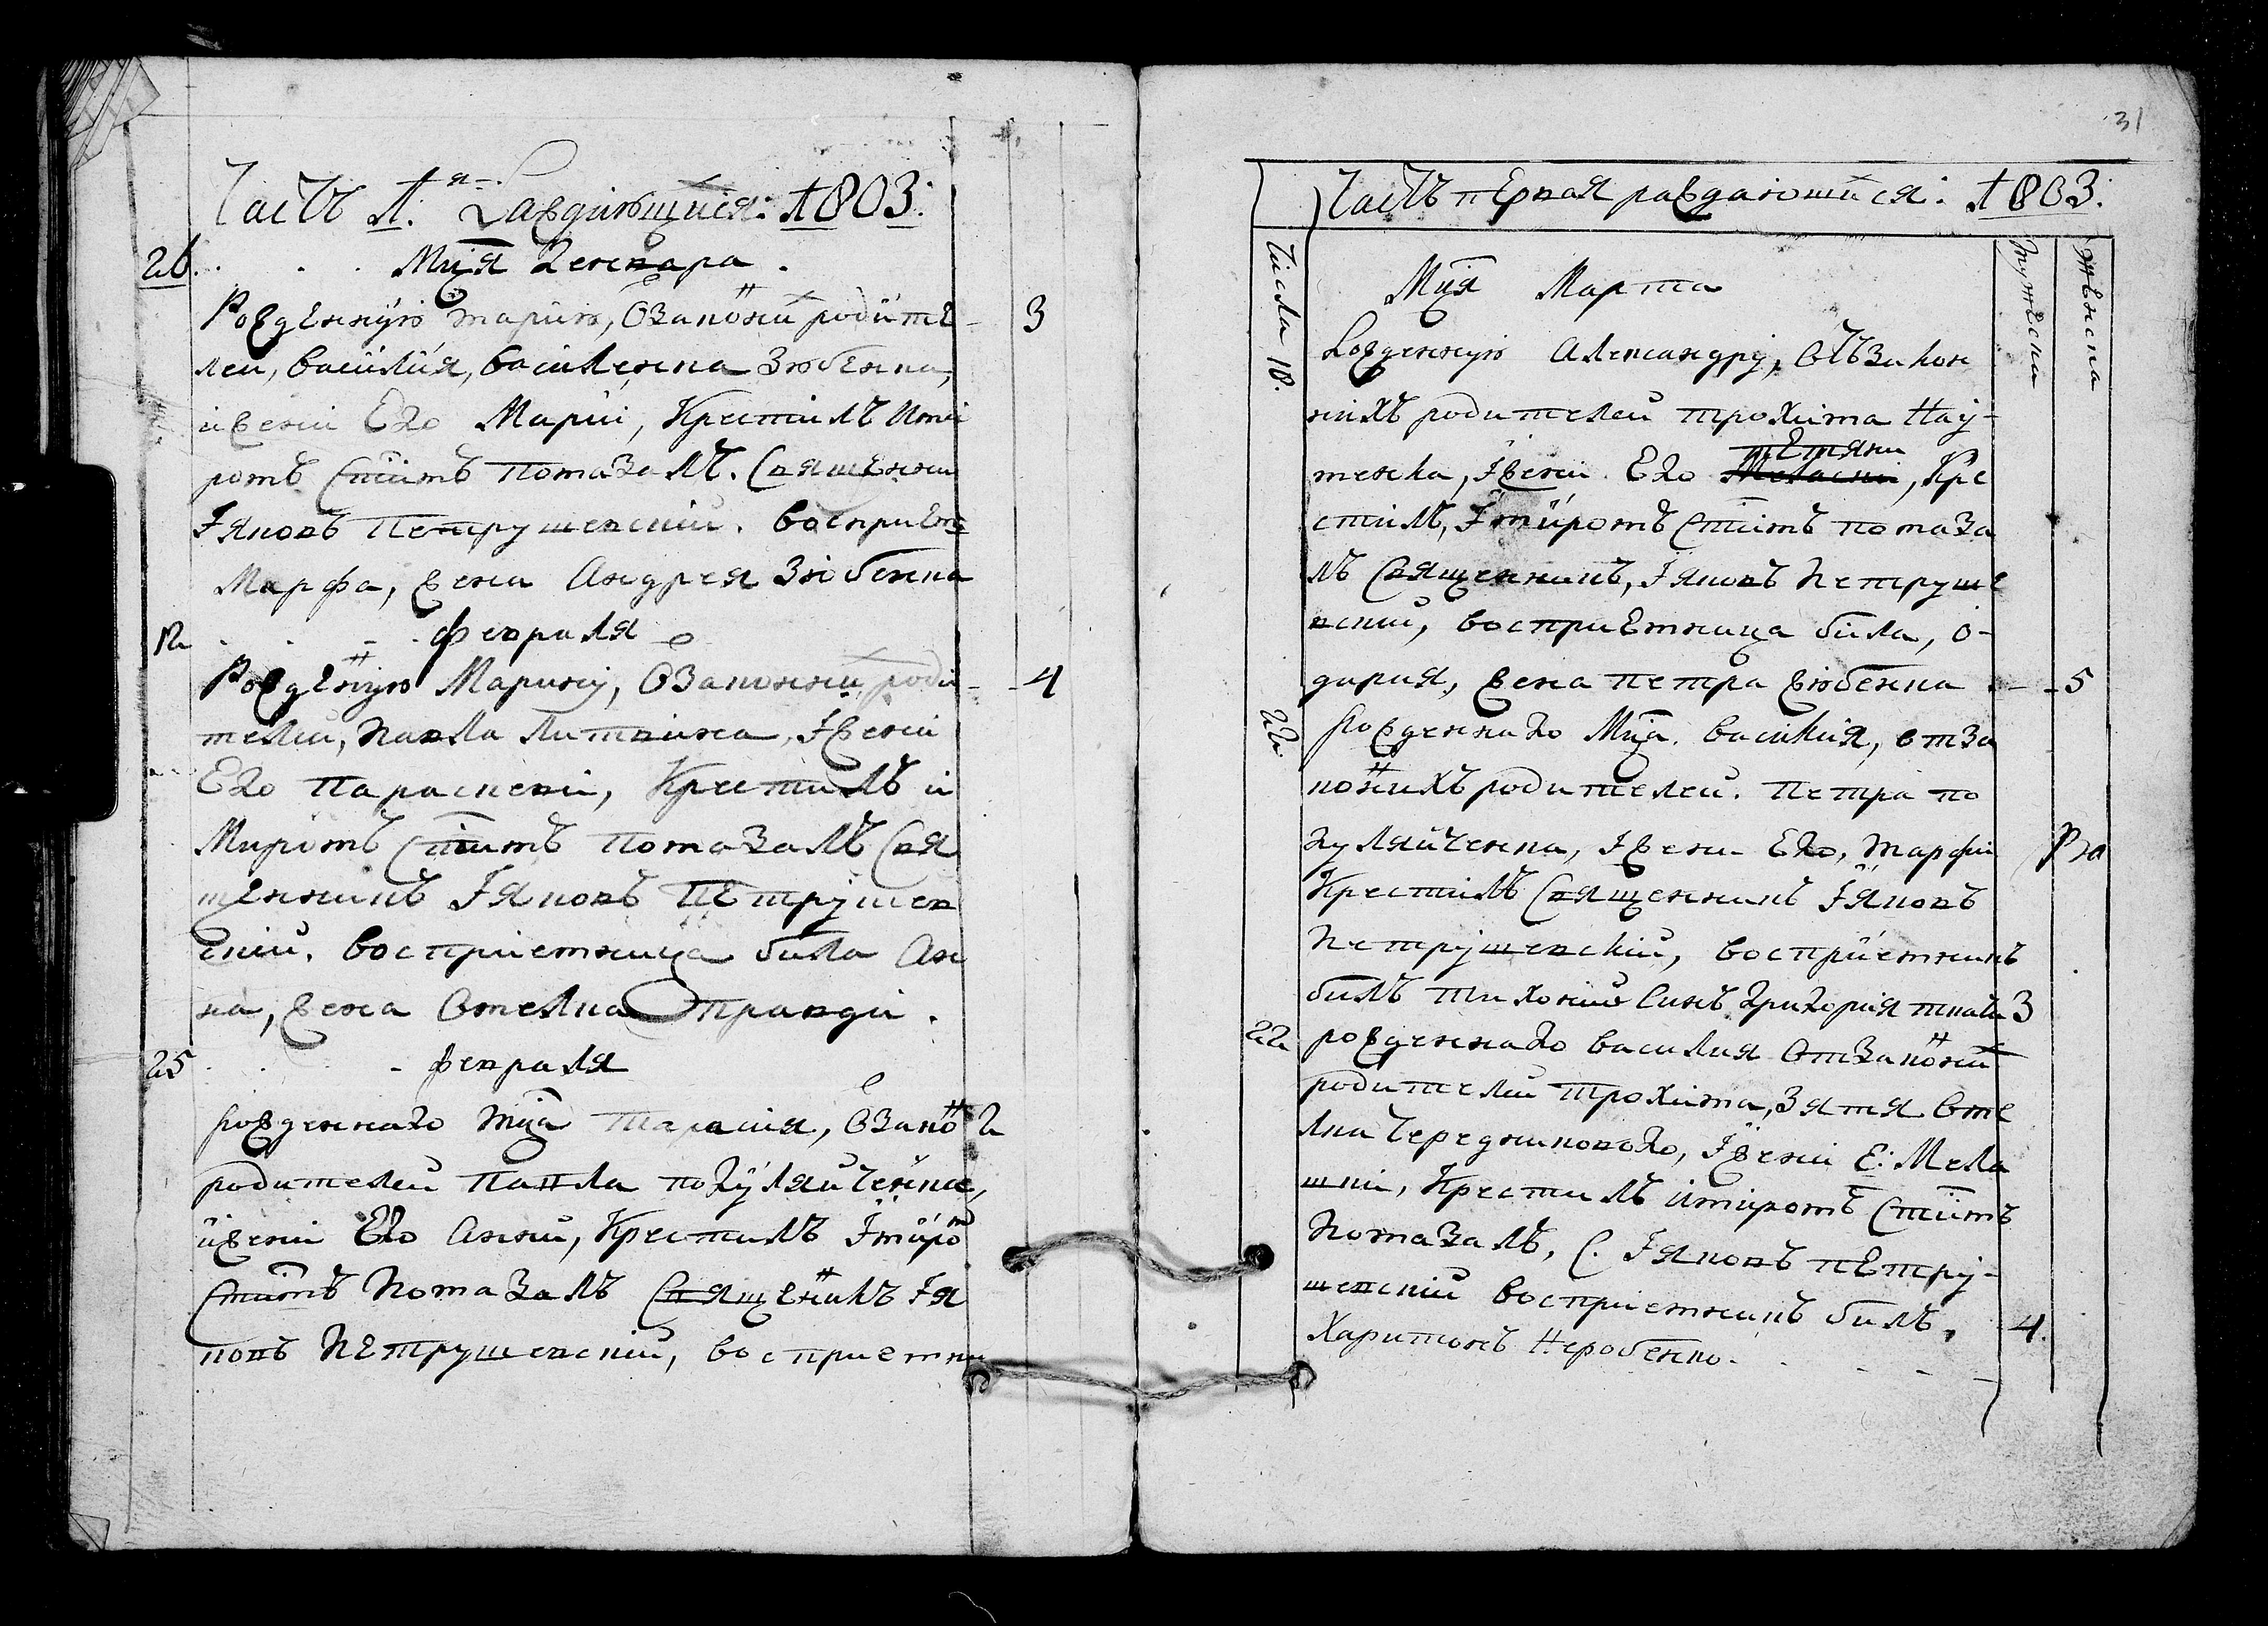 Часть 1.я Раждающиися: 1803:
26. Мця Генвара.
Рожденную марию, Ѿ законных родите- 3
лей, василия, василенка Зюбенка,
и жени Его Марии, Крестилъ и ми
ромъ Стимъ помазалъ. Священни
Іяковъ петрушевский. восприем
Марфа, жена Андрея Зюбенка
12 февраля
Рожденную Марину, Ѿ законних роди- 4
телей, павла литвина, і жени
Его параскеви, Крестилъ и
Миромъ Стимъ помазалъ Свя
щенникъ Іяковъ петрушев
ский. восприемница била Ан
на, жена Омелка правди.
25 февраля
рожденнаго мца тарасия, Ѿ закон 2
родителей павла погуляйченка,
и жени Его Анни, Крестилъ і миром
Стимъ помазалъ Священикъ Ія
ковъ петрушевский, восприемни
31
Часть первая раждающиися: 1803:
Числа
мужеска
женска
Мця Марта
10. Рожденную Александру, Ѿ закон
нихъ родителей трохима Нау-
менка, і жени Его
тетяни
Меласии, Кре
стилъ, і миромъ Стимъ помаза
лъ Священникъ, Іяковъ петруше
вский, восприемница била, о-
дария, жена петра зюбенка. 5
22. рожденнаго Мца. василия, отза
конихъ родителей. петра по
гуляйченка, і жени Его, марфи
Крестилъ Священникъ Іяковъ
петрушевский, восприемникъ
билъ тихоний Синъ григория 3
22 рожденнаго василия отзаконих
родителей трохима, зятя оме
лка Чередникового, і жени Е: Мела
шки, Крестилъ и миромъ Стимъ
помазалъ, С. Іяковъ петру-
шевский восприемникъ билъ, 4.
Харитонъ Неробенко.